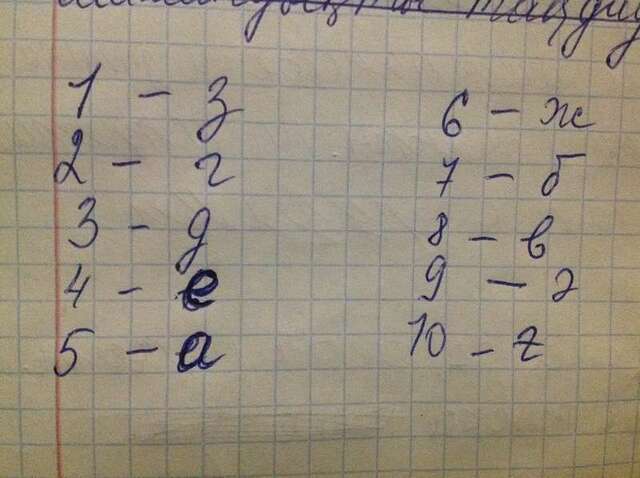 1 - з
2 - г
3 - д
4 - е
5 - а
6 - ж
7 - б
8 - в
9 - г
10 - г